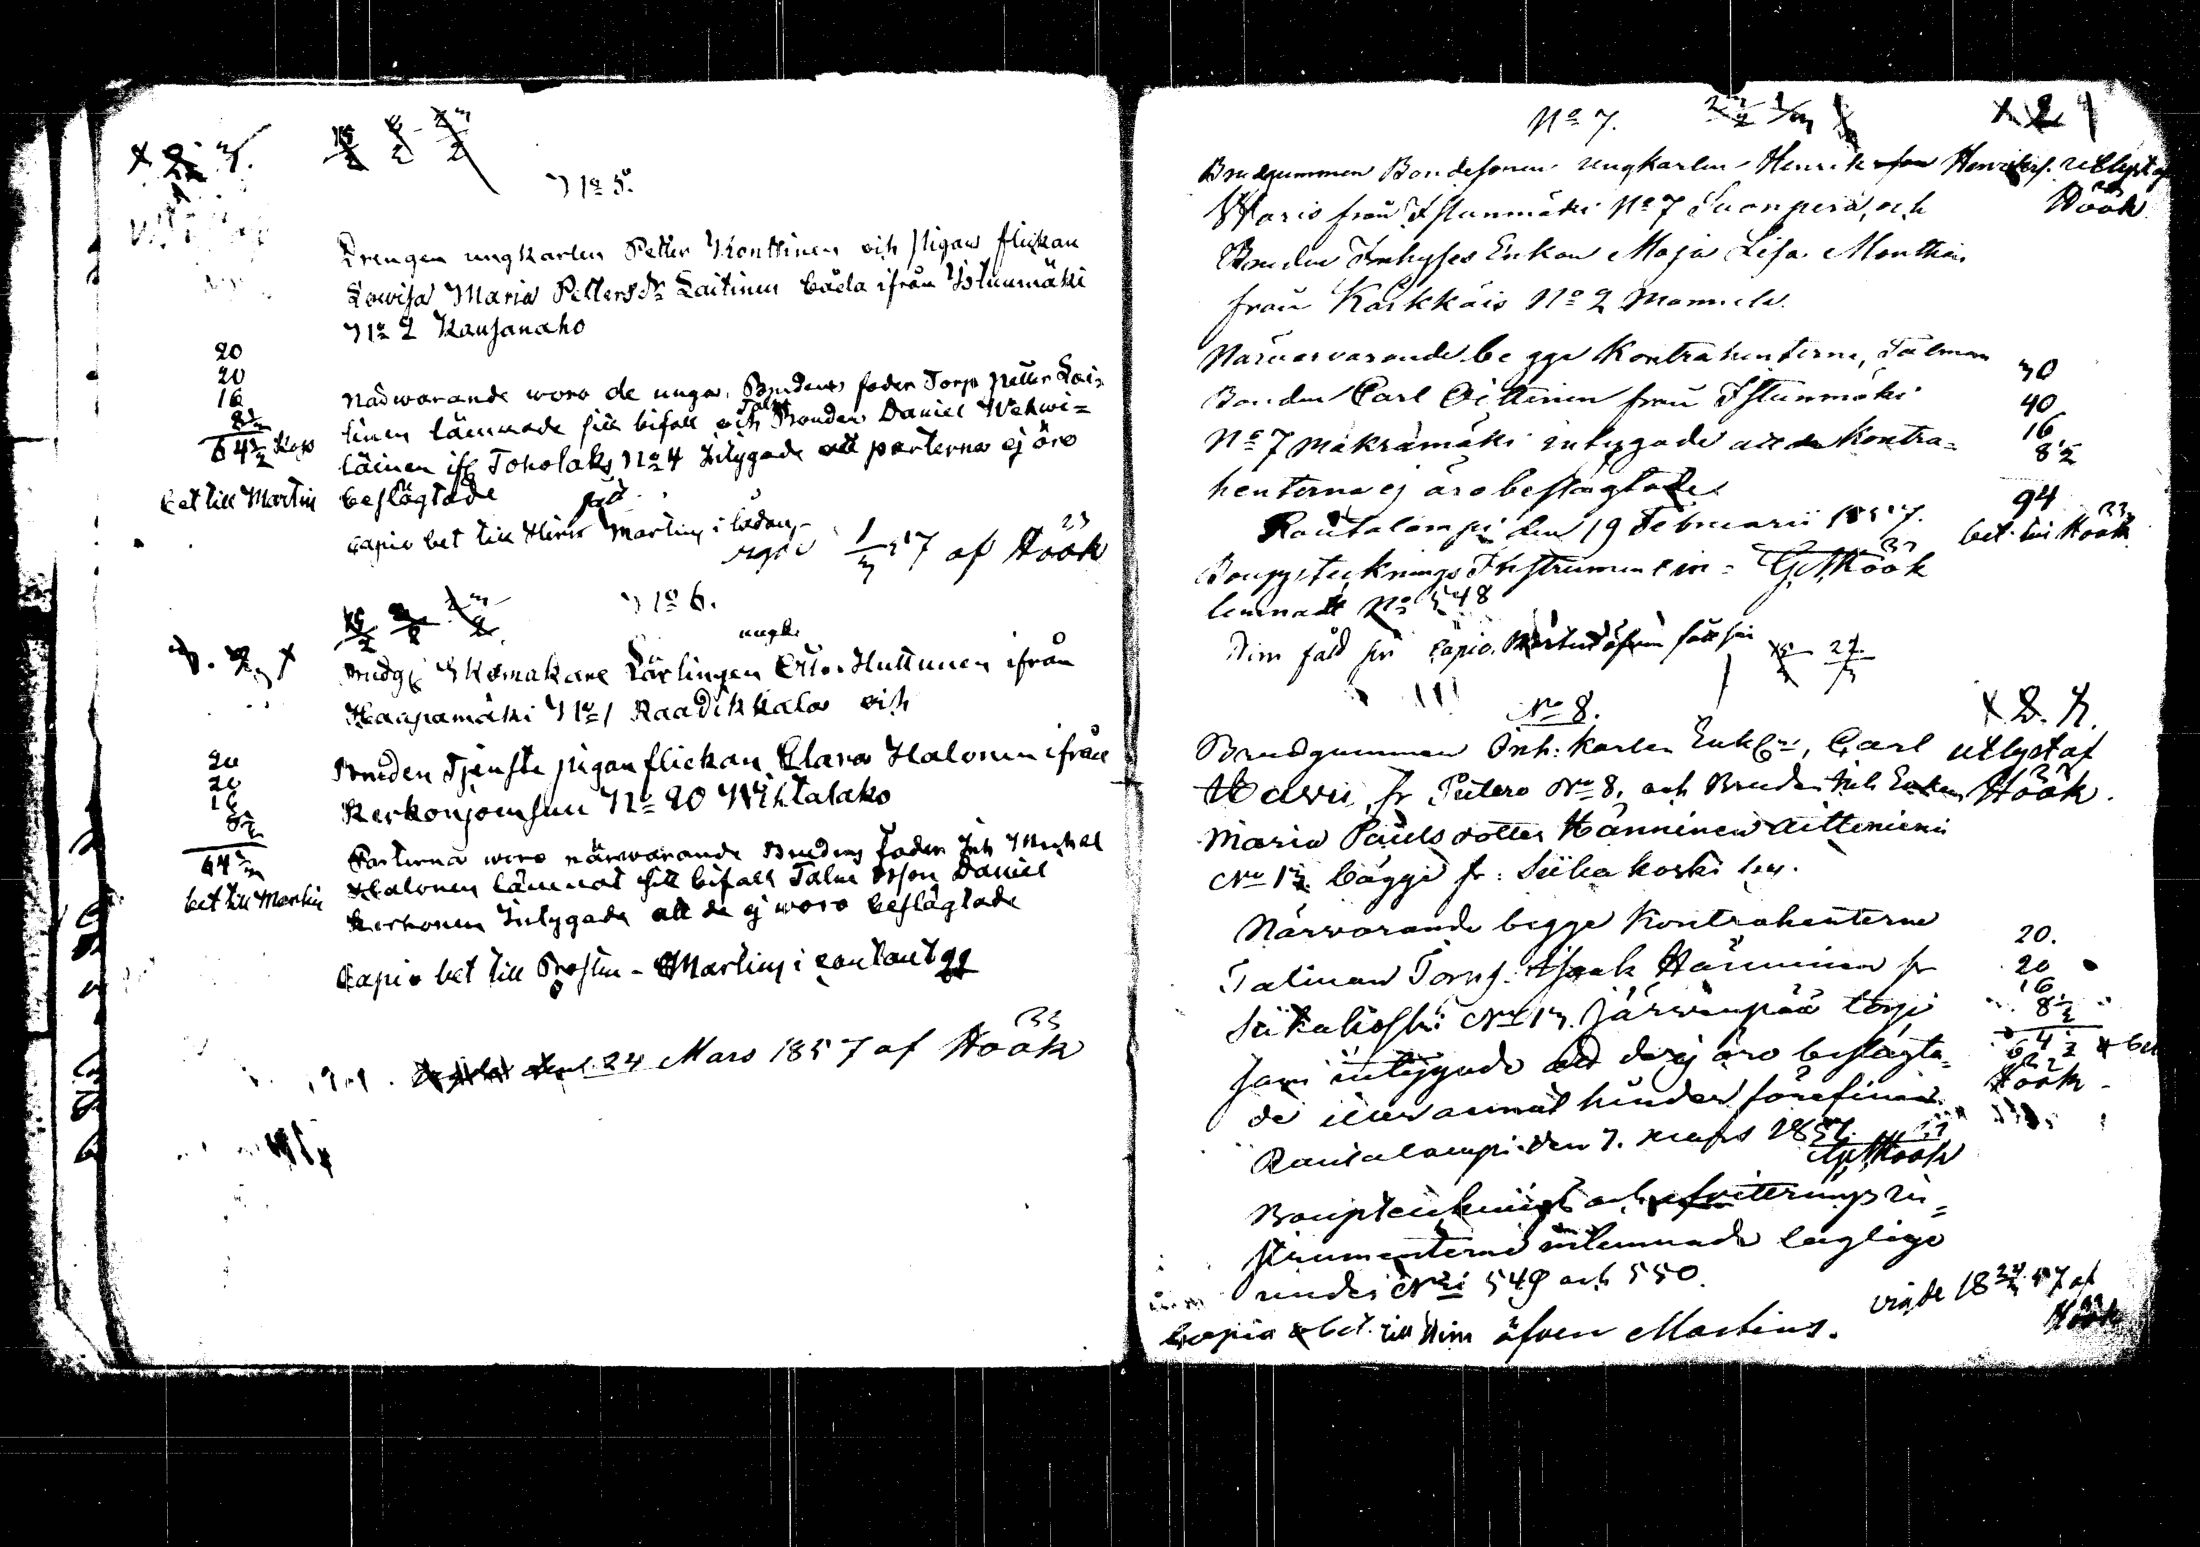 No 5.
Drengen ungkarlen Petter Konttinen och pigan flickan
Lowisa Maria Pettersdr Laitinen båda ifrån Istunmäki
No 2 Kansanaho
20
20
16
8½
64½ Kop
bet till Martin
närwarande woro de unga, Brudens fader Torp Petter Lai=
tinen lämnade sitt bifall och Talm Bonden Daniel Wehwi=
läinen ifr Toholaks No 4 Intygade att parterna ej äro
beslägtade
Capio bet till Herr Martin i lådan
1/3 57 af Höök
No 6.
Brudg Skomakare Lärlingen ungk. Otto Huttunen ifrån
Haapamäki No 1 Raadikkala och
Bruden Tjenste pigan flickan Clara Halonen ifrån
Kerkonjoensuu No 20 Wihtalako
20
20
16
8½
64½
bet till Martin
Parterna woro närwarande Brudens fader Inh Michel
Halonen lämnat sitt bifall Talm Bson Daniel
Kerkonen Intygade att de ej woro beslägtade
Capio bet till Prosten - Martin i contant
den 24 Mars 1857 af Höök
No 7.
Brudgummen Bondesonen ungkarlen Henrik Henriks. utlyst af
Höök
Waris från Istunmäki No 7 Suonperä, och
Bruden Inhyses Enkan Maja Lisa
från Kärkkäis No 2 Mannila.
Närvarvarande begge Kontrahenterne, Talman
Bonden Carl Oittinen från Istunmäki
No 7 Makramäki intygade att de Kontra=
henterna ej äro beslägtade
Rautalampi den 19 Februarii 1857.
30
40
16
8½
94
bet. till Höök
Bouppstecknings Instrument in= G. Höök
lemnadt No 548
No 8.
Brudgummen Inh: karlen Enkl, Carl
Havu, fr Piitero No 8, och Bruden Inh Enkan
Maria Paulsdotter Hänninen Aittoniemi
No 13 bägge fr: Siikakoski
utlyst af
Höök.
Närvarande begge Kontrahenterne
Talman Torp: Isaak Hänninen fr
Siikakoski No 13. Järvenpää torp
som intygade att de ej äro beslägta=
de eller annat hinder förefinnes.
Rautalampi den 7. mars 1857.
G Höök
20.
20
16
8½
64½ bet
Höök
Boupptecknings och afvitterings in=
strumenterne inlemnade laglige
under No 549 och 550.
Copia bet. till Him äfven Martins.
vigde 18 24/3 57 af
Höök